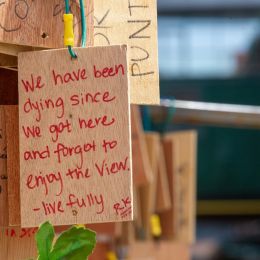 PUNT
We have been
dying since
we got here
and forgot to
enjoy the view.
- live fully